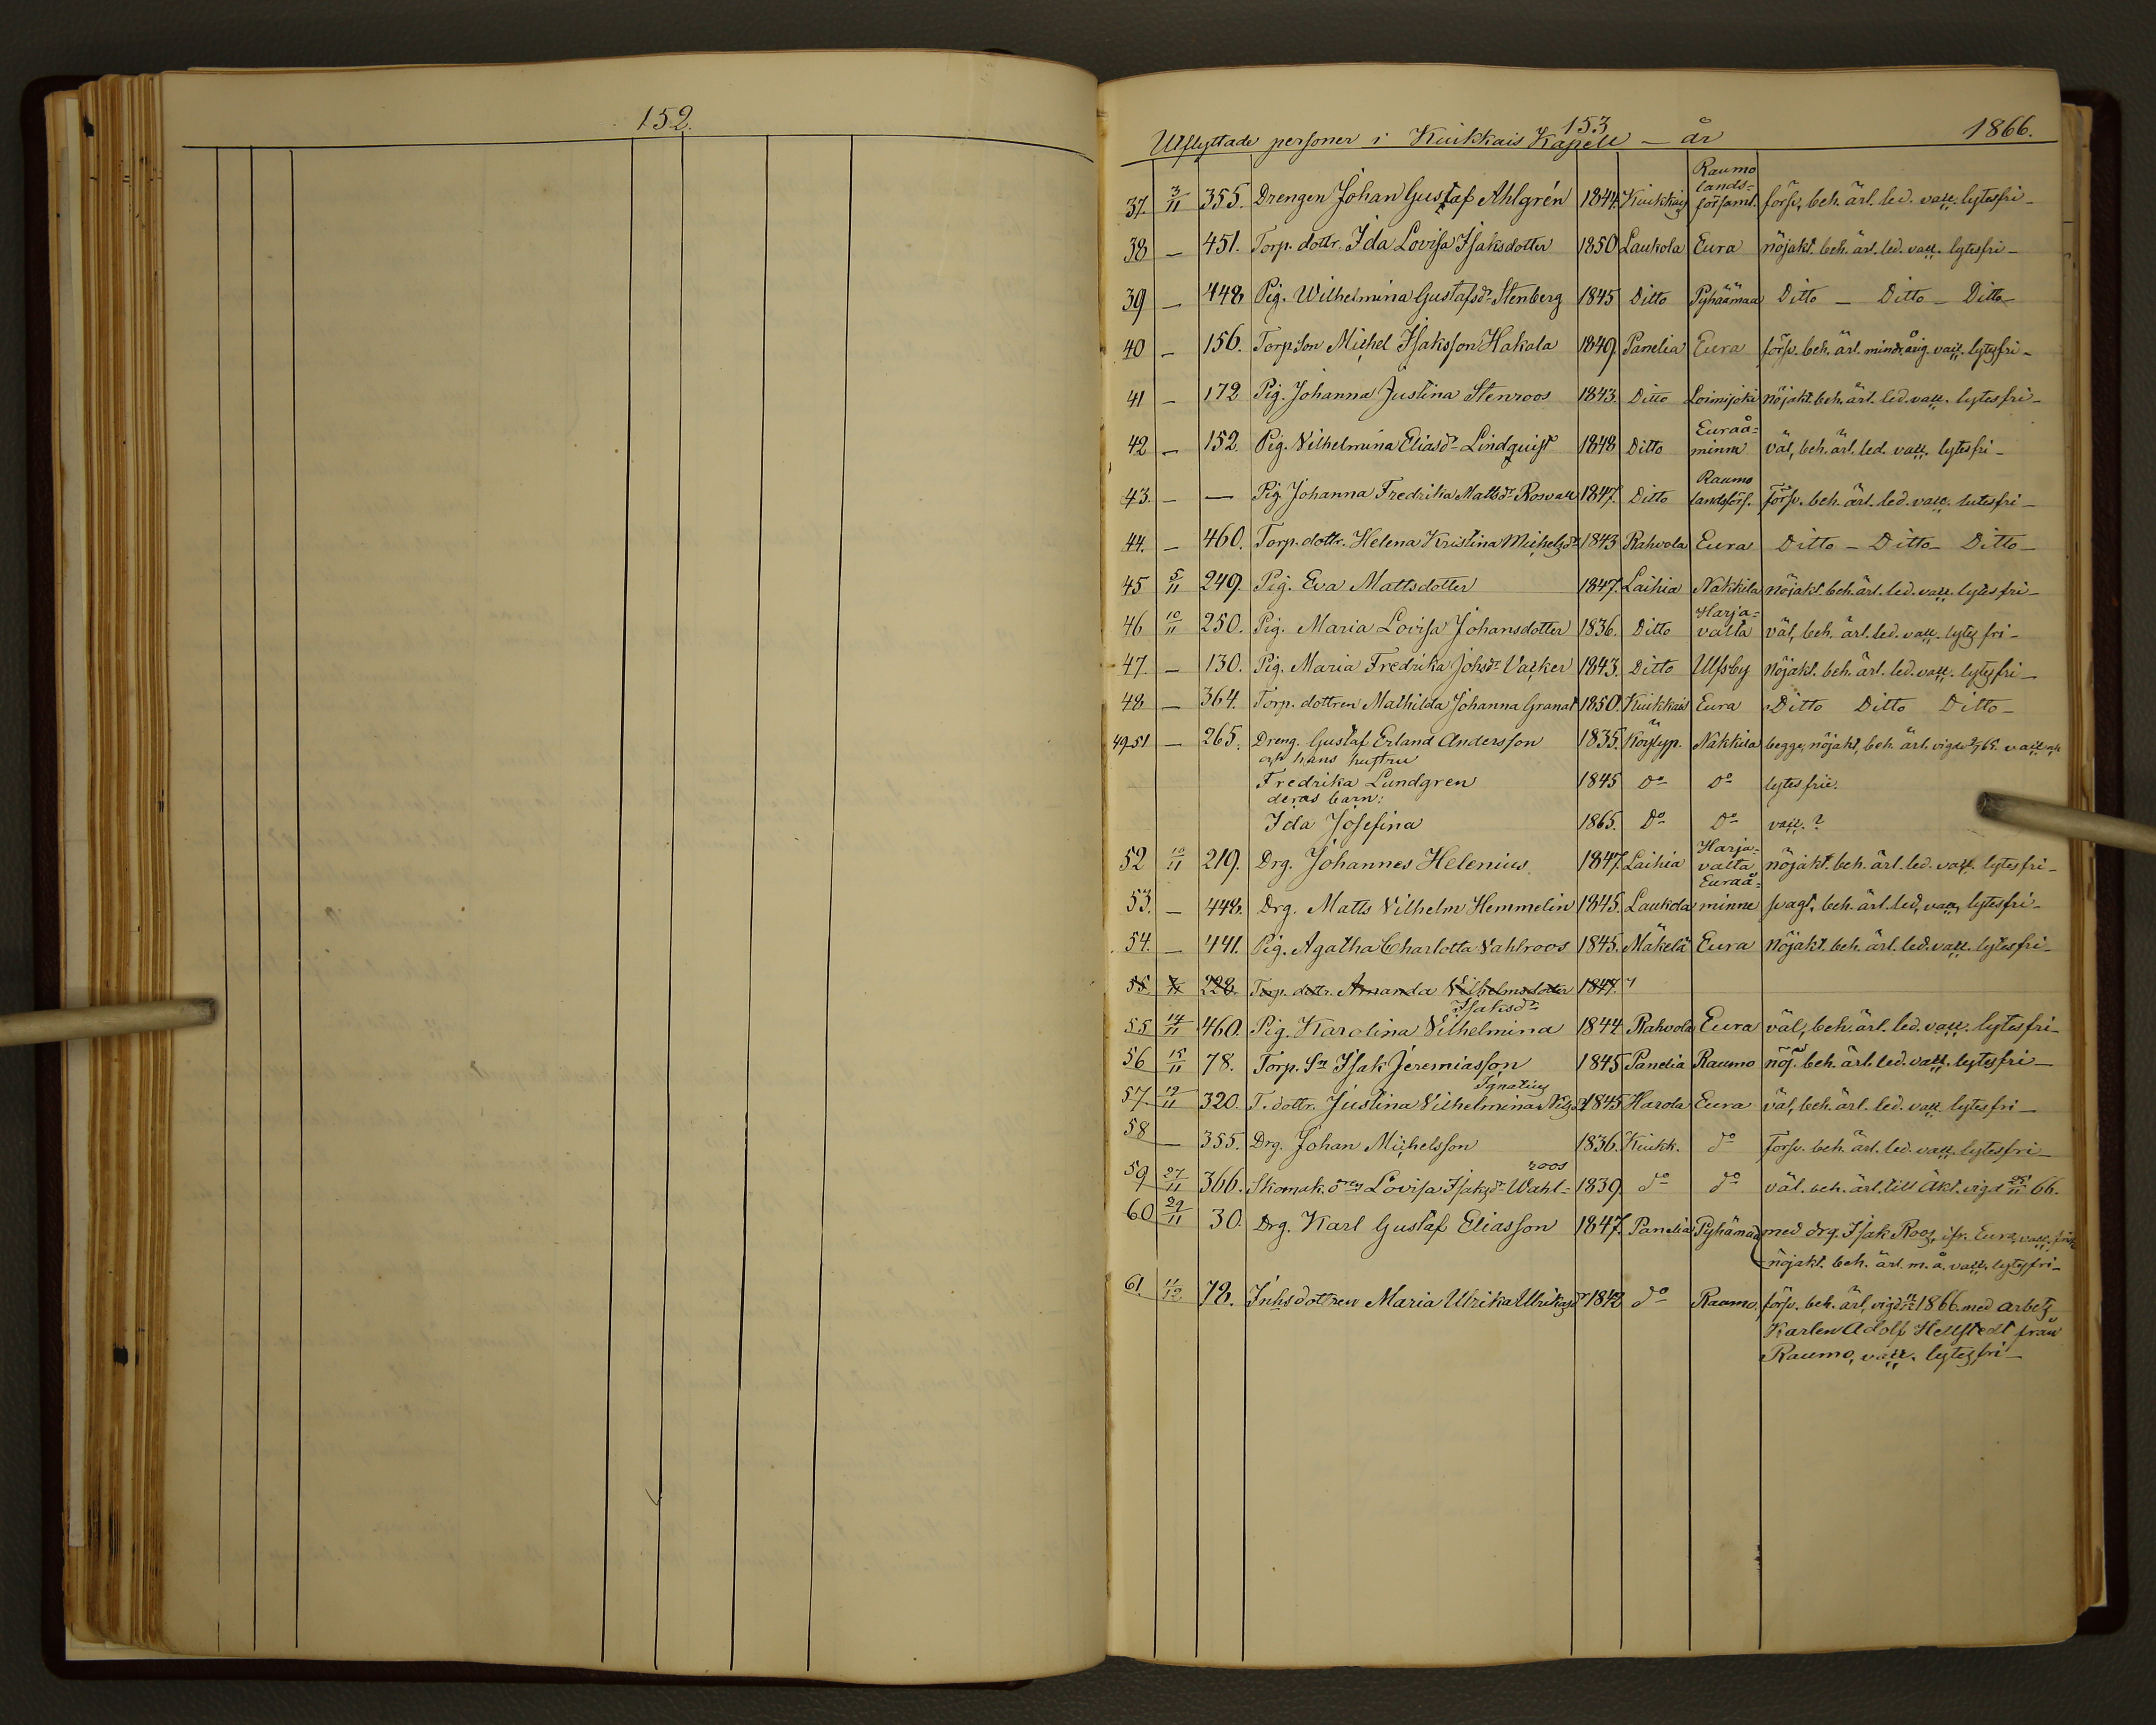 152.
153
Utflyttade personer i Kiukkais Kapell — år 1866.
Raumo
lands=
37. 3/11 355. Drengen Johan Gustaf Ahlgrén 1844. Kiukkais församl. försv. beh. ärl. led. vacc. lytesfri —
38 — 451. Torp. dottr. Ida Lovisa Isaksdotter 1850 Laukola Eura nöjakt. beh. ärl. led. vacc. lytesfri —
39 — 448 Pig. Wilhelmina Gustafsdr Stenberg 1845 Ditto Pyhäämaa Ditto — Ditto — Ditto —
40 — 156. Torp. Son Michel Isaksson Hakala 1849. Panelia Eura försv. beh. ärl. minderårig. vacc. lytesfri —
41 — 172 Pig. Johanna Justina Stenroos 1843. Ditto Loimijoki nöjakt. beh. ärl. led. vacc. lytesfri —
Euraå=
42 — 152. Pig. Vilhelmina Eliasdr Lindquist 1848 Ditto minne väl, beh. ärl. led. vacc. lytesfri —
Raumo
43. — — Pig. Johanna Fredrika Mattsdr Rosvall 1847. Ditto landsförs. försv. beh. ärl. led. vacc. lutesfri —
44. — 460. Torp. dottr. Helena Kristina Michelsdr 1843 Rahvola Eura Ditto — Ditto — Ditto —
45 5/11 249. Pig. Eva Mattsdotter 1847. Laihia Nakkila nöjakt. beh. ärl. led. vacc. lytes fri —
Harja=
46 10/11 250. Pig. Maria Lovisa Johansdotter 1836. Ditto valta väl, beh. ärl. led. vacc. lytes fri —
47. — 130. Pig. Maria Fredrika Johsdr Vacker 1843. Ditto Ulfsby nöjakt. beh. ärl. led. vacc. lytesfri —
48 — 364. Torp. dottren Mathilda Johanna Granat 1850. Kiukkais Eura Ditto Ditto Ditto —
49-51 — 265. Dreng. Gustaf Erland Andersson 1835. Köylyp. Nakkila begge, nöjakt, beh. ärl. vigde 65. vacc. och
och hans hustru
Fredrika Lundgren 1845 Do Do lytes frie.
deras barn:
Ida Josefina 1865. Do Do vacc. ?
Harja=
52 10/11 219. Drg. Johannes Helenius. 1847. Laihia valta nöjakt. beh. ärl. led. vacc. lytesfri —
Euraå=
53. — 448. Drg. Matts Vilhelm Hemmelin 1845. Laukola minne svagt, beh. ärl. led, vacc, lytesfri —
54. — 441. Pig. Agatha Charlotta Vahlroos 1845. Mäkelä Eura nöjakt. beh. ärl. led. vacc. lytesfri —
55 228. Torp. dottr. Amanda Vilhelmsdotter 1847.
Isaksdr
55 14/11 460. Pig. Karolina Vilhelmina 1844 Rahvola Eura väl, beh. ärl. led. vacc. lytesfri —
56 15/11 78. Torp. Sn Isak Jeremiasson 1845 Panelia Raumo nöj. beh. ärl. led. vacc. lytesfri —
Ignatius
57. 19/11 320. T. dottr. Justina Vilhelmina 1845 Harola Eura väl, beh. ärl. led. vacc. lytesfri —
58 — 355. Drg. Johan Michelsson 1836. Kiukk. do Försv. beh. ärl. led. vacc. lytesfri —
roos
59 27/11 366. Skomak. Lovisa Isaksdr Wahl= 1839. do do väl. beh. ärl. till äkt. vigd 25/11 66.
60 29/11 30. Drg. Karl Gustaf Eliasson 1847. Panelia Pyhämaa med drg. Isak Roos, ifr. Eura, vacc.
nöjakt. beh. ärl. m. å. vacc. lytesfri —
61. 11/12 78. Inhs dottren Maria Ulrika Ulrikasdr 1842 do Raumo, försv. beh. ärl, vigd 1866. med arbets
Karlen Adolf Hellstedt från
Raumo, vacc. lytesfri —